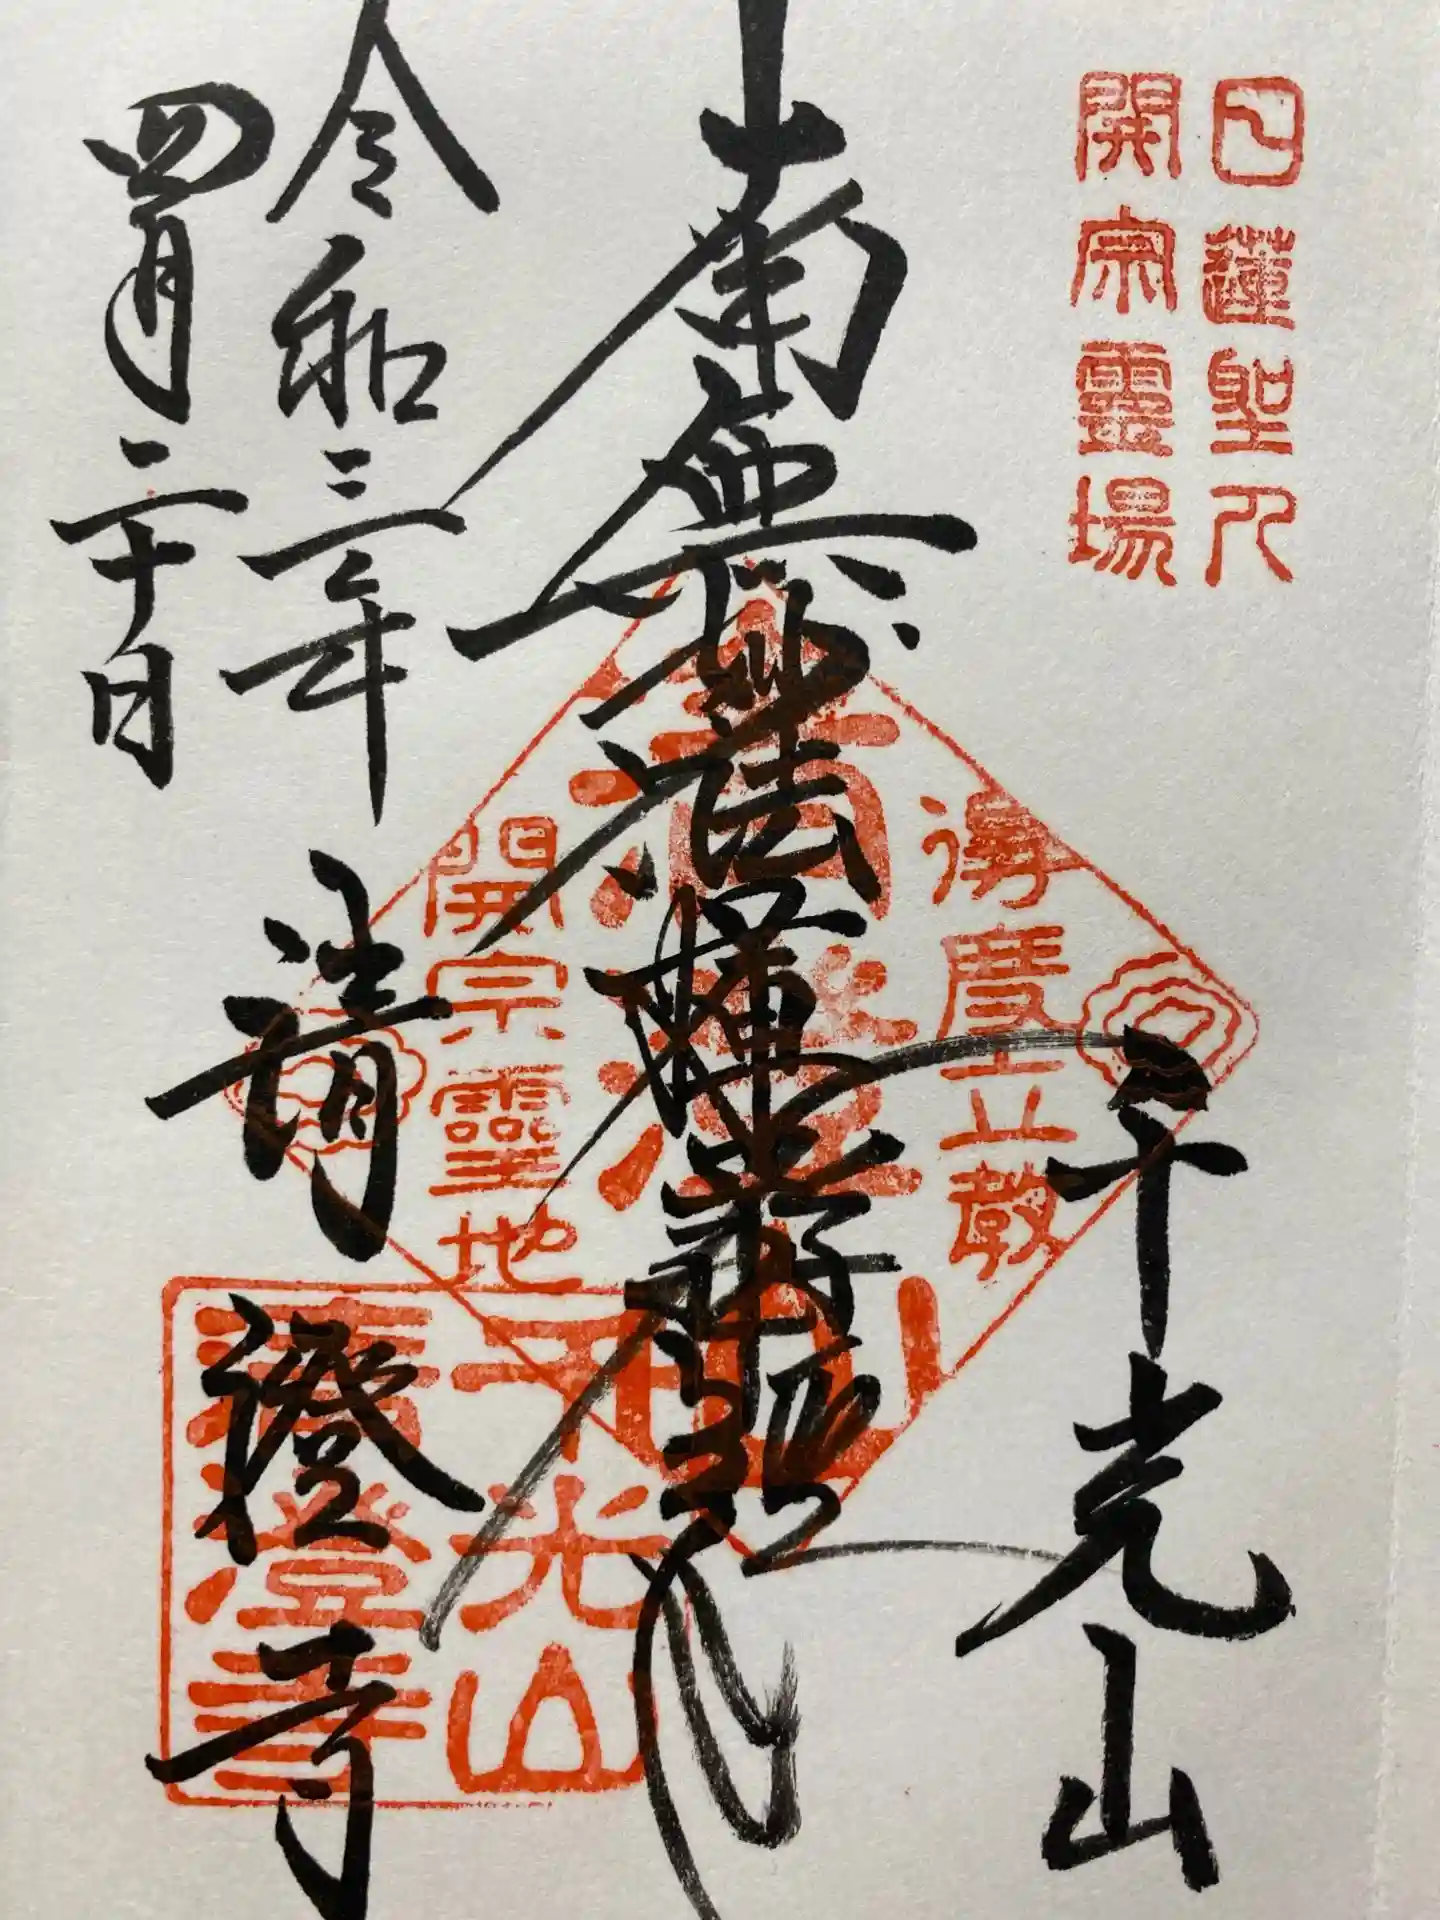 日蓮聖人
開宗霊場
千光山
得度立教
南無妙法蓮華経
開宗霊地
令和三年
四月二十日
清澄寺
千光山
清澄寺